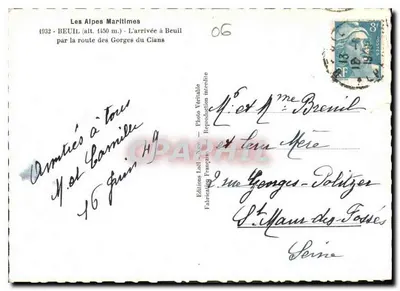 Les Alpes Maritimes
4932 - BEUIL (alt. 1450 m.) - L'arrivée à Beuil
par la route des Gorges du Cians
06
Amitiés à tous
M. et Camille
16 Juin 49
Fabrication Française - Reproduction interdite
Photo Véritable
Mr et Mme Breuil
et leur Mère
2 rue Georges-Politzer
St Maur-des-Fossés
Seine